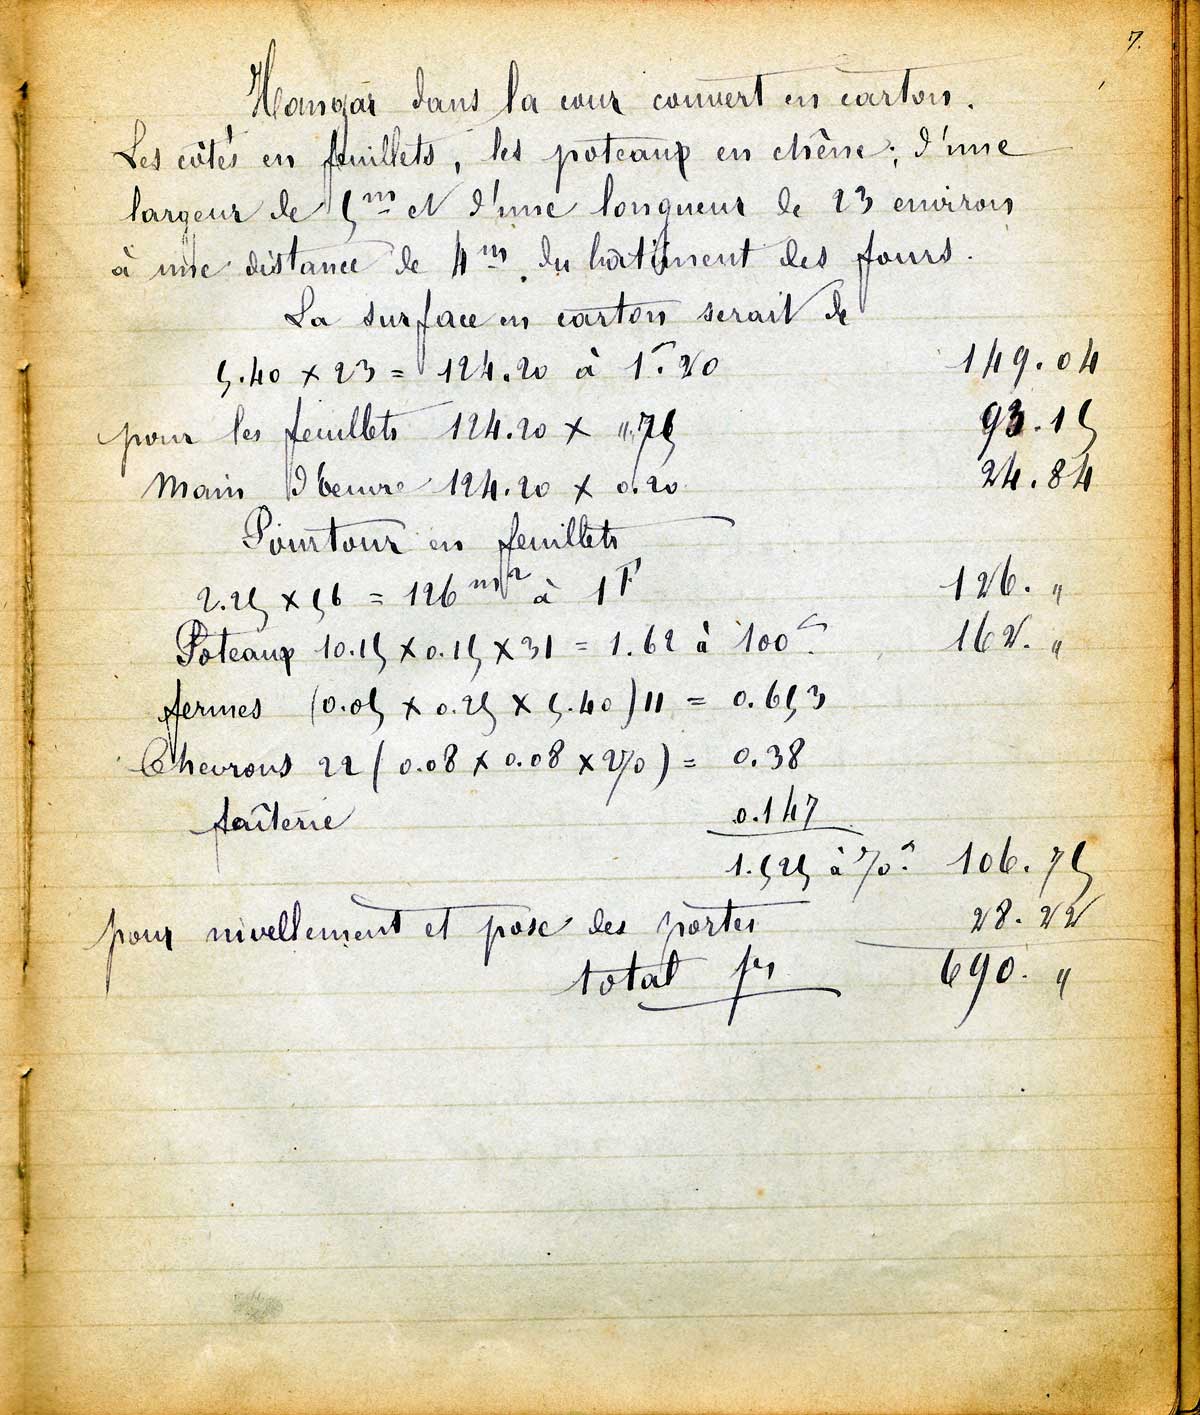 7.
Hangar dans la cour couvert en carton.
Les côtés en feuillets, les poteaux en chêne; d'une
largeur de 5m et d'une longueur de 23 environ
à une distance de 4m. du bâtiment des fours.
La surface en carton serait de
5.40 × 23 = 124.20 à 1f.20 149.04
pour les feuillets 124.20 × ",75 93.15
Main d'oeuvre 124.20 × 0.20 24.84
Pourtour en feuillets
2.25 × 56 = 126 m2 à 1F 126. "
Poteaux 10.15 × 0.15 × 31 = 1.62 à 100f. 162. "
fermes (0.05 × 0.25 × 5.40) 11 = 0.653
Chevrons 22 (0.08 × 0.08 × 270) = 0.38
faîterie 0.147
1.525 à 70f. 106.75
pour nivellement et pose des portes 28.22
total frs 690. "